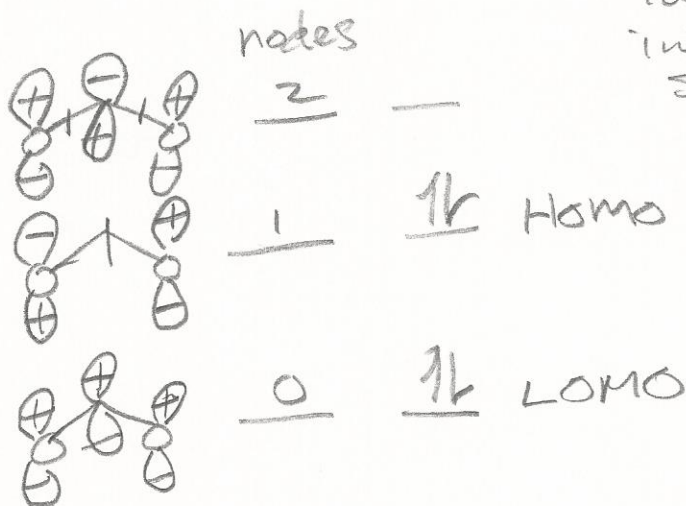 nodes
in
+ - +
2
- + -
- +
1 HOMO
+ -
+ + +
0 LOMO
- - -